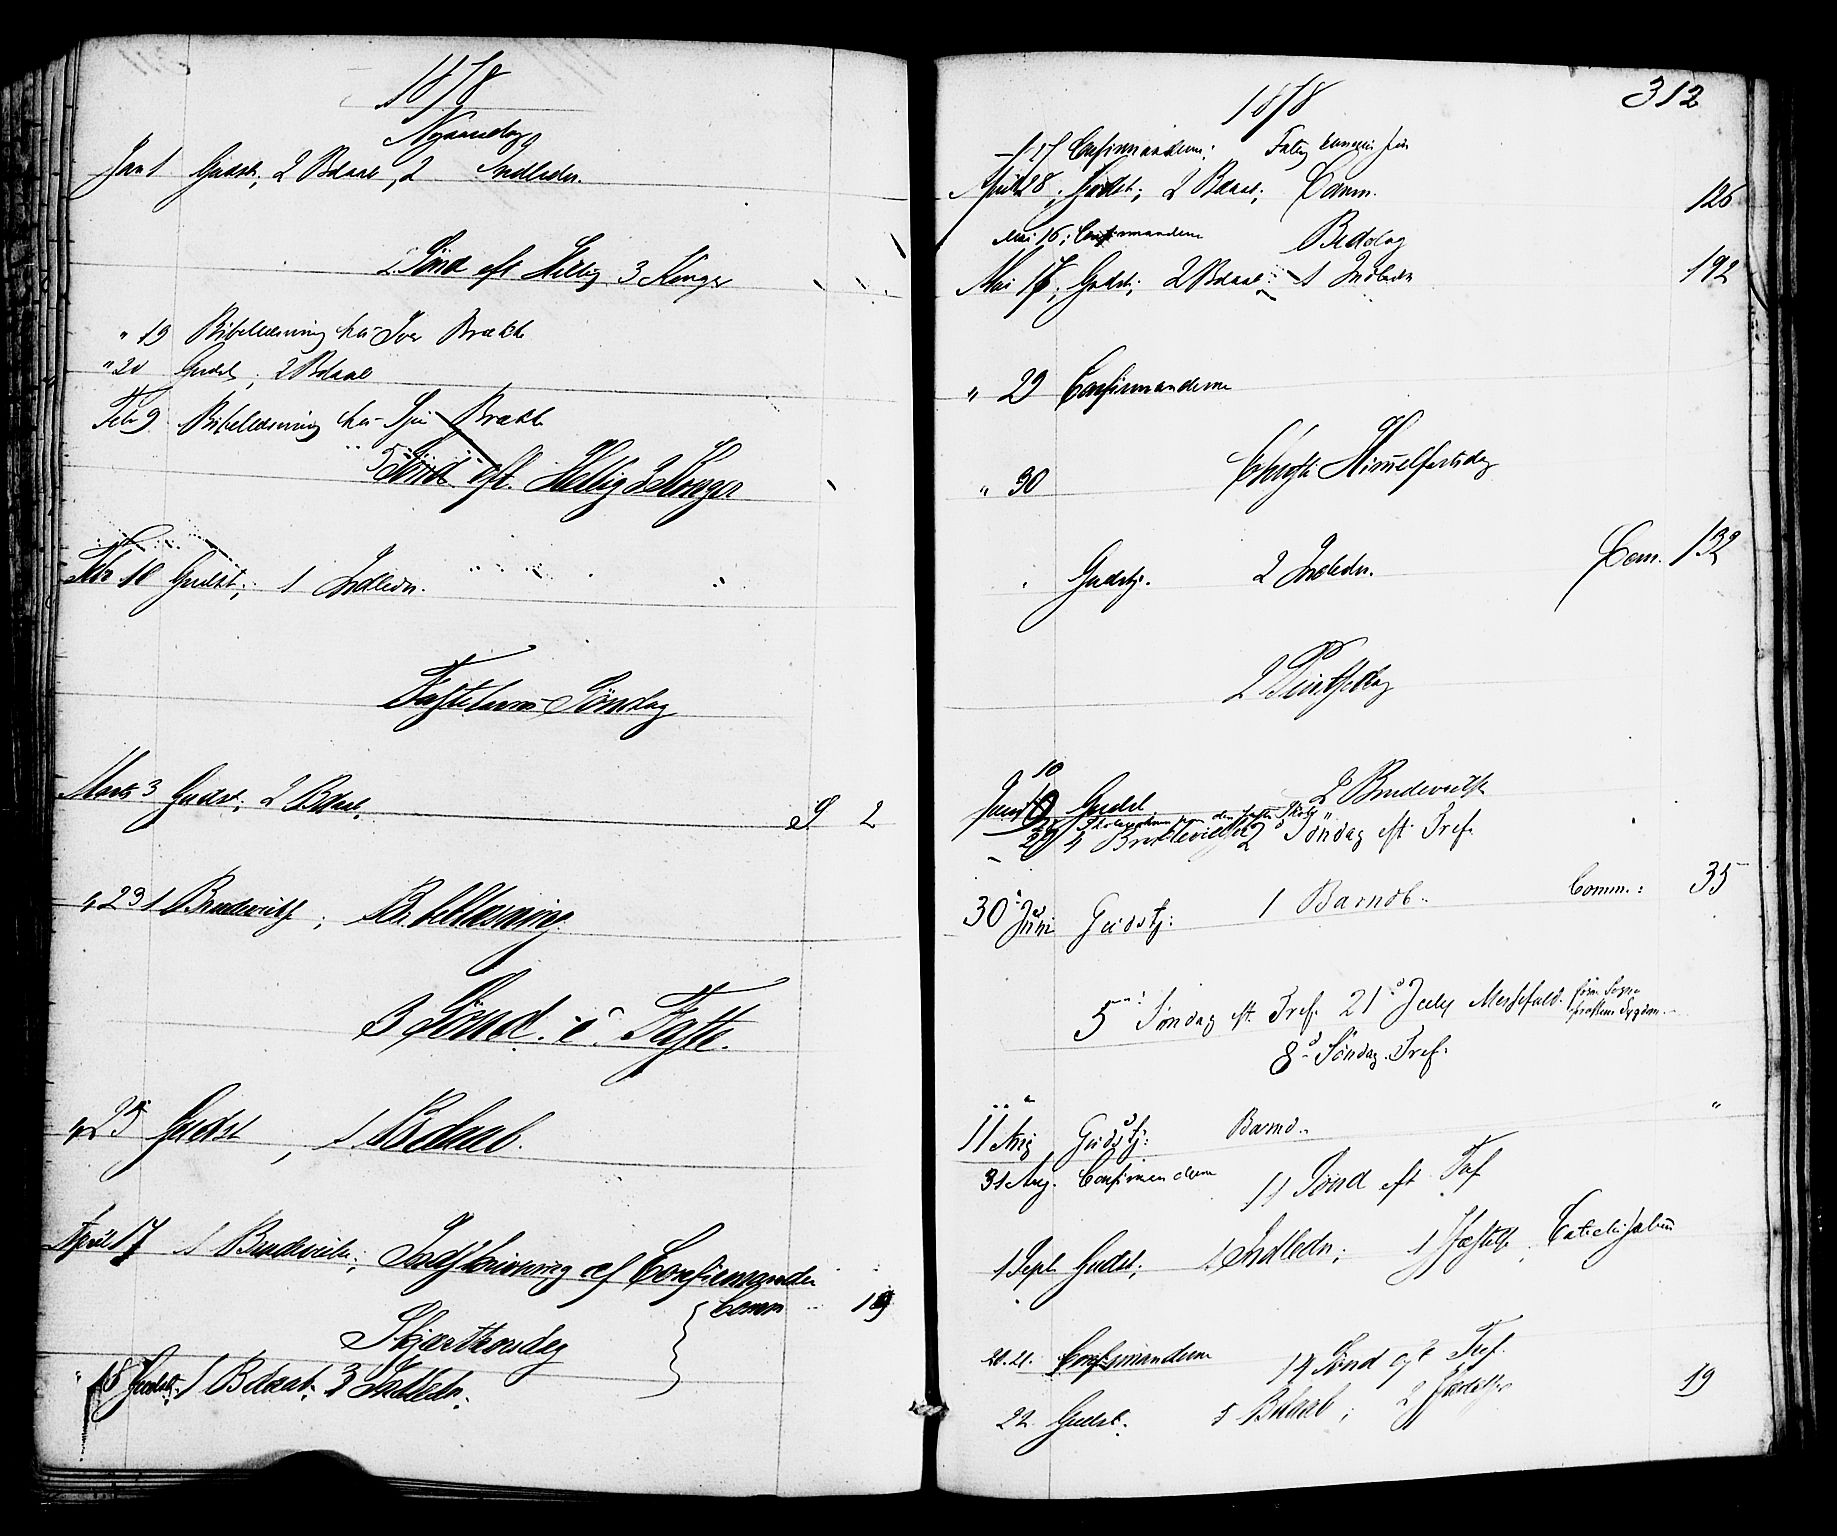 1878
Nyaarsdag
Jan 1 Gudst; 2 Bdaab, 2 Indledn.
2 Sönd eft Hellig 3 Konger
" 19 Bibellæsning hos Iver Brække
" 20 Gudst; 2 Bdaab
Feb 9 Bibellæsning hos Brække
5 Sönd eft. Hellig 3 Konger
Febr 10 Gudst; 1 Indledn.
Fastelavns Söndag
Marts 3 Gudst; 2 Bdaab. 2
" 23 1 Brudevielse; Bibellæsning
3 Sönd. i Faste.
" 25 Gudst, 1 Bdaab.
April 17 1 Brudevielse; Indskrivning af Confirmander
Comm 19
Skjærthorsdag
" 18 Gudst. 1 Bdaab. 3 Indledn.
312
1878
27 Confirmanderne:
April 28; Gudst; 2 Bdaab; Comm. 126
Mai 16; Confirmanderne
Bededag
Mai 17; Gudst; 2 Bdaab; 1 Indledn 192
" 29 Confirmanderne
" 30 Christi Himmelfartsdag
" Gudstj. 2 Indledn. Com. 132
2 Pintsedag
10
Juni Gudst 2 Brudevielse
2 Söndag eft Tref.
30 Juni Gudstj: 1 Barndb. Comm.: 35
5 Söndag eft. Tref. 21 July Messefald
8 Söndag Tref:
11 Aug Gudstj: Barnd. "
31 Aug. Confirmanderne
11 Sönd eft Tref
1 Sept Gudst; 1 Indledn; 1 Jordfæstelse;
20.21. Confirmanderne 14 Sönd eft Tref.
22 Gudst. 5 Bdaab; 2 19